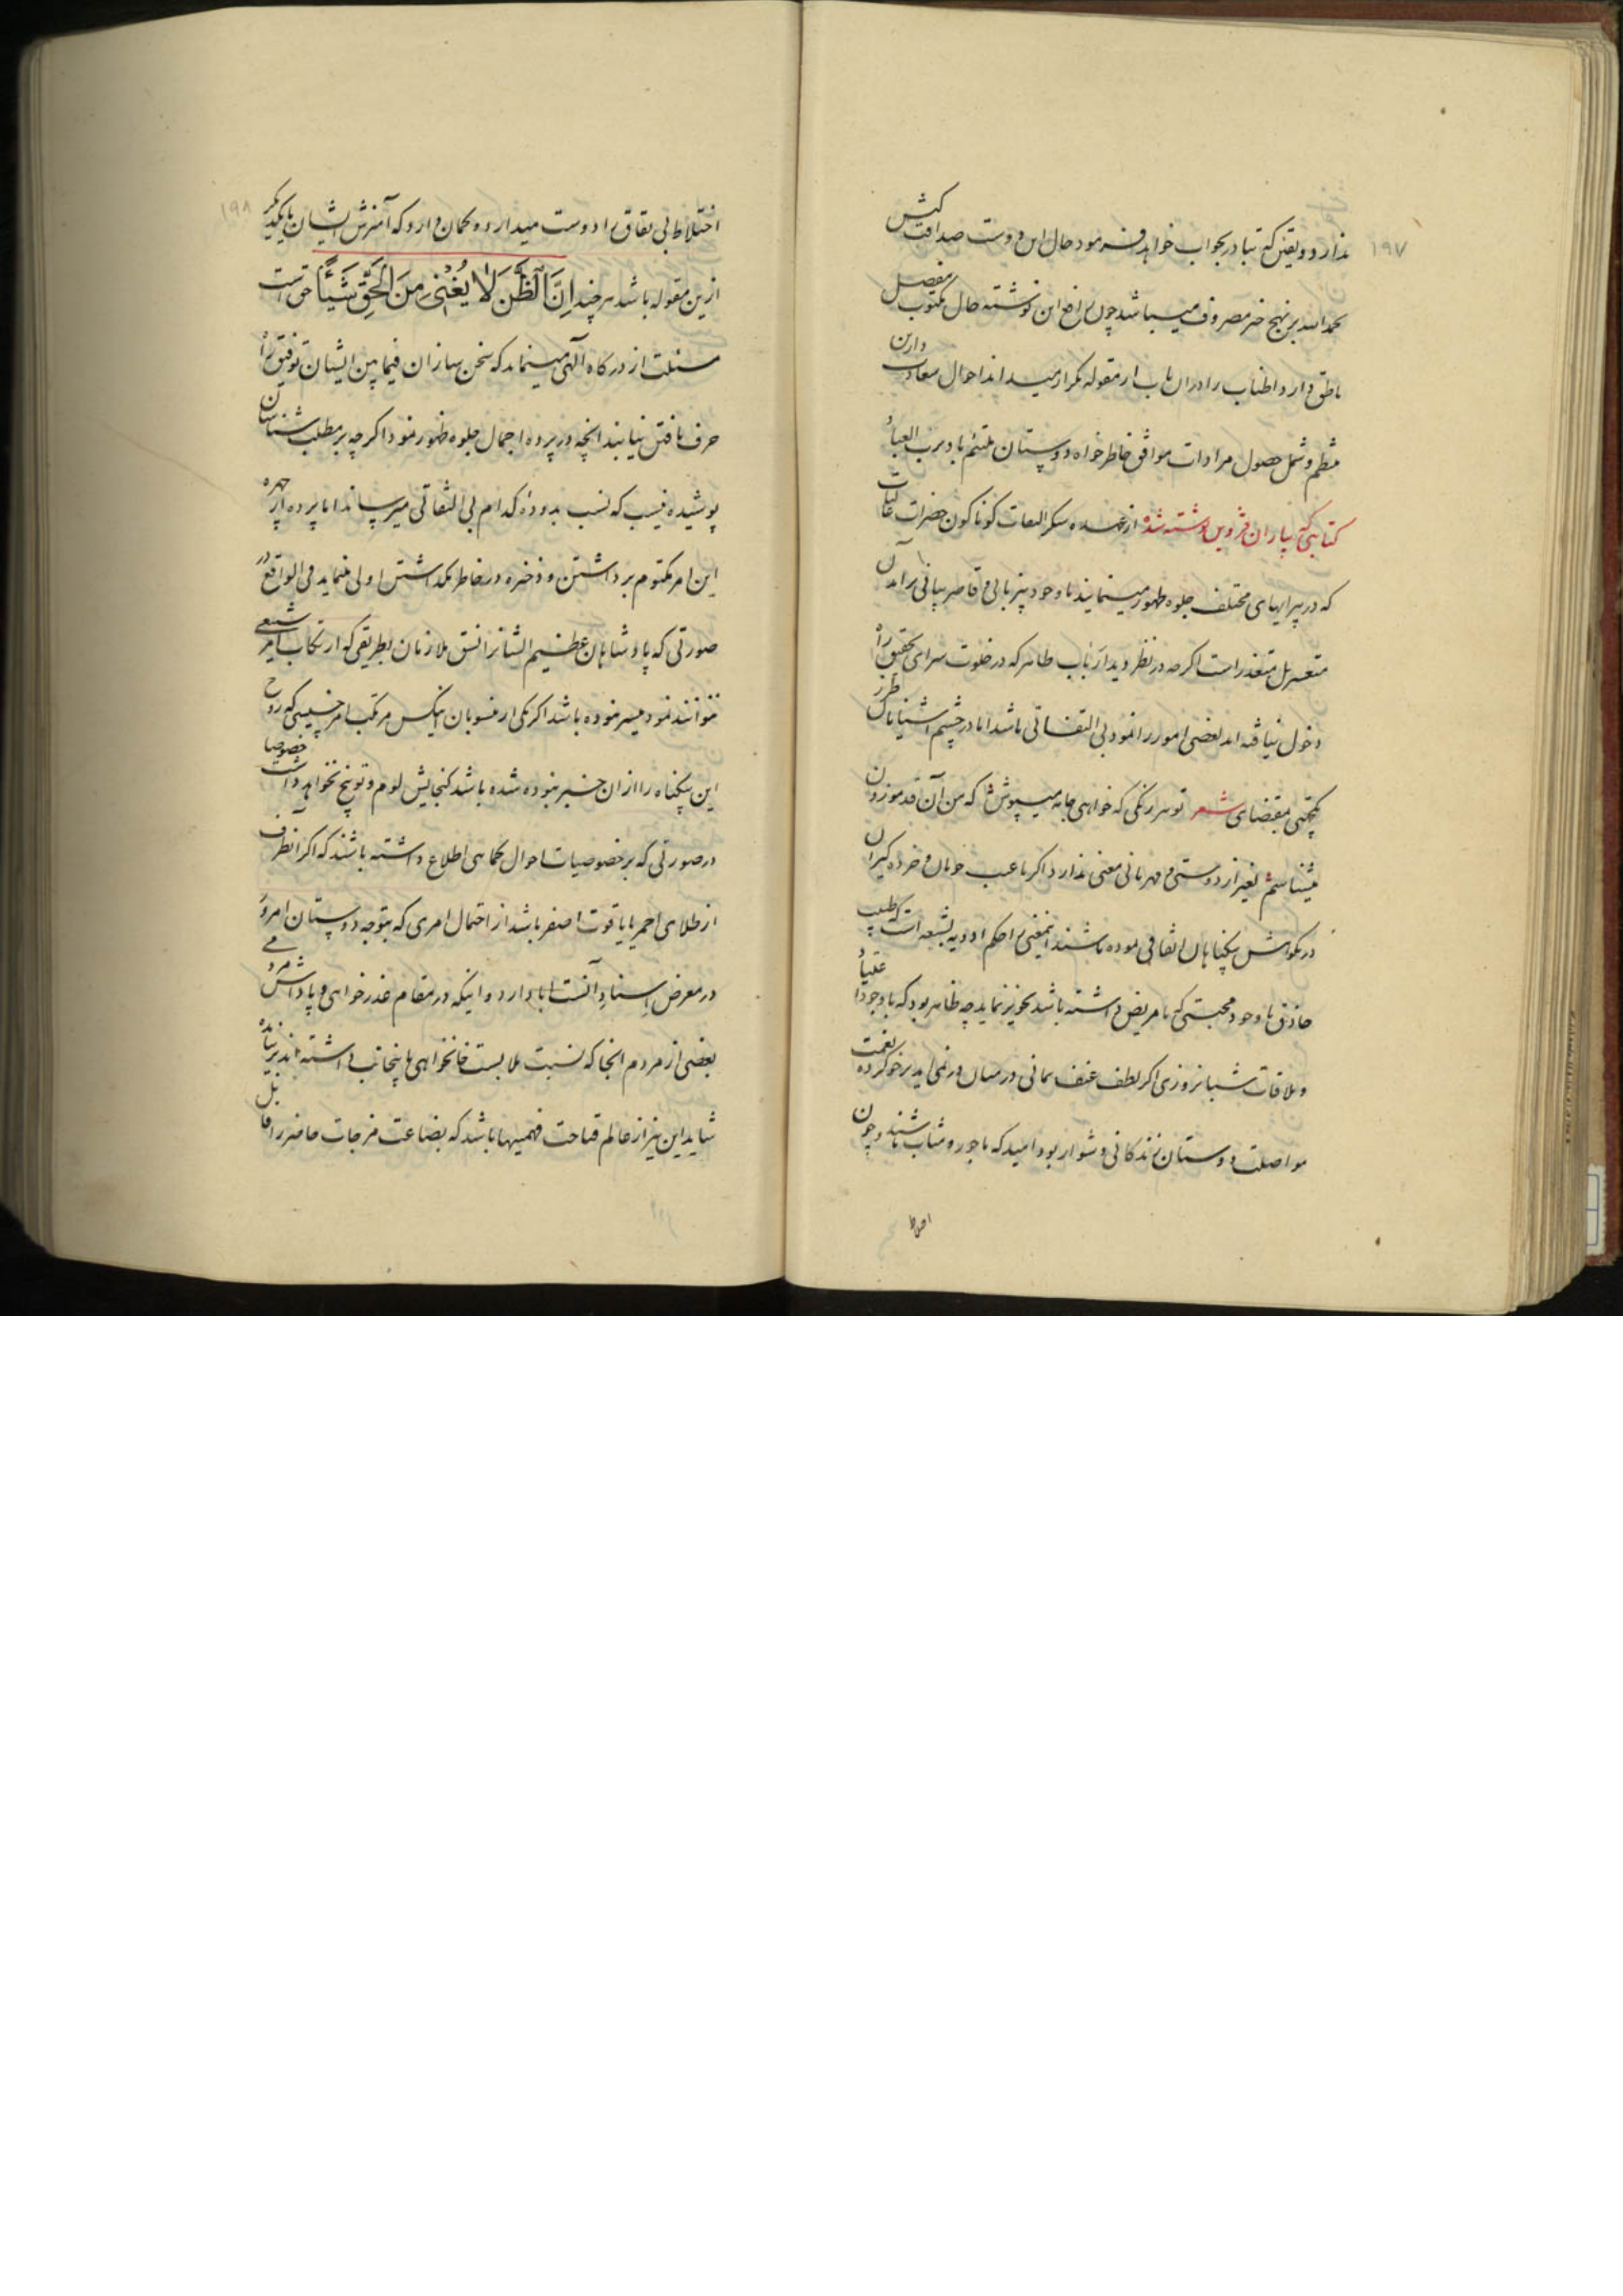 ۱۹۷
ندارد و یقین که تبادر بجواب خواهد فرمود حال این دوست صداقت کیش
بحمدالله بر نهج خیر مصروف میباشد چون رافع این نوشته حال مکتوب مفصل
ناطق دارد اطناب را در ان باب از مقوله تکرار میداند احوال سعادت دارین
منتظم و شمل حصول مرادات موافق خاطرخواه دوستان ملتئم باد برب العباد
کتابتی که بیاران قزوین نوشته شده از عهده شکر التفات کوناکون حضرات عالیات
که در پیرایهای مختلف جلوه ظهور مینمایند با وجود بیزبانی و قاصر بیانی برآمدن
متعسر بل متعذر است اکرچه در نظر دیدار باب ظاهر که در خلوت سرای تحقیق راه
دخول نیافته اند بعضی امور را نمود بی التفاتی باشد اما در چشم آشنایان طرز
یکجهتی بمقتضای شعر تو هر رنکی که خواهی جامه میپوش که من آن قد موزون
میشناسم بغیر از دوستی و مهربانی معنی ندارد اکر با عیب خوبان و خرده کیران
در نکوهش بیکناهان اتفاقی نموده باشند اینمعنی را حکم ادویه بشعه است که طبیب
حاذق با وجود محبتی که با مریض داشته باشد تجویز نماید چه ظاهر بود که با وجود
و ملاقات شبانروزی اکر لطف عنف نمائی در میان در نمی اید بر خو کرده نعمت
مواصلت دوستان زندکانی دشوار بود امید که ماجور و مثاب باشند و چون
اختلاط
۱۹۸
اختلاط بی نفاق را دوست میدارد و کمان دارد که آمیزش ایشان بایکدیکر
ازین مقوله باشد هر چند اِنَّ الظَّنَ لَا یُغْنِی مِنَ الْحَقِّ شَیْئًا حق است
مسئلت از درکاه آلهی مینماید که سخن سازان فیمابین ایشان توفیق راه
حرف یافتن نیابند انچه در پرده اجمال جلوه ظهور نمود اکرچه بر مطلب شناسان
پوشیده نیست که نسب بدودهٔ کدام بی التفاتی میرساند اما پرده از چهره
این امر مکتوم برداشتن و ذخیره در خاطر نکذاشتن اولی مینماید فی الواقع در
صورتی که پادشاهان عظیم الشانرا نسق ملازمان بطریقی که ارتکاب امر شنیعی
نتوانند نمود میسر نبوده باشد اکر یکی از منسوبان اینکس مرتکب امر خسیسی که روح
این بیکناه را از ان خبر نبوده شده باشد کنجایش لوم و توبیخ نخواهد داشت خصوصا
در صورتی که بر خصوصیات احوال کماهی اطلاع داشته باشند که اکر انطرف
از طلای احمر یا یاقوت اصفر باشد از احتمال امری که بتوجه دوستان امروز
در معرض اسناد آنست ابا دارد و اینکه در مقام عذرخواهی و پاداش مردمی
بعضی از مردم انجا که نسبت ملابست خانخواهی باینجانب داشته اند
شاید این نیز از عالم قباحت فهمیها باشد که بضاعت مزجات ماحضر را قابل